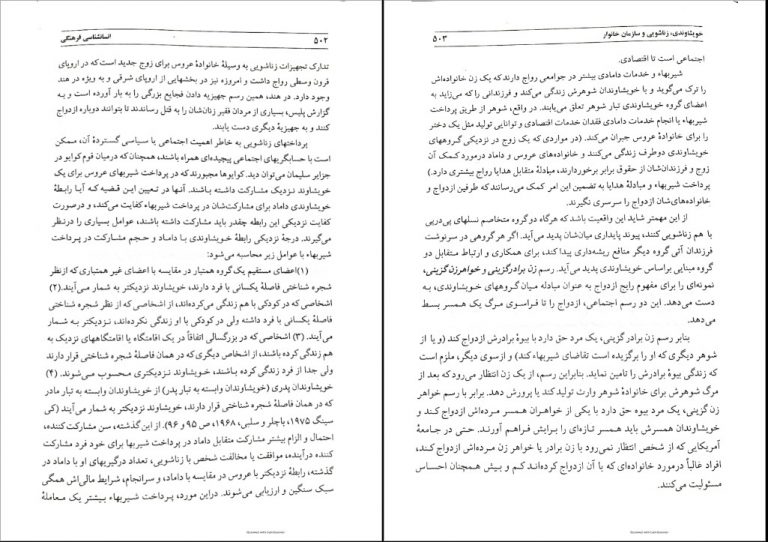 ۵۰۲ انسانشناسی فرهنگی
تدارک تجهیزات زناشویی به وسیلهٔ خانوادهٔ عروس برای زوج جدید است که در اروپای
قرون وسطی رواج داشت و امروزه نیز در بخشهایی از اروپای شرقی و به ویژه در هند
وجود دارد. در هند، همین رسم جهیزیه دادن فجایع بزرگی را به بار آورده است و به
گزارش پلیس، بسیاری از مردان فقیر زنان‌شان را به قتل رساندند تا بتوانند دوباره ازدواج
کنند و به جهیزیهٔ دیگری دست یابند.
پرداختهای زناشویی به خاطر اهمیت اجتماعی یا سیاسی گستردهٔ آن، ممکن
است با حسابگریهای اجتماعی پیچیده‌ای همراه باشند، همچنان که درمیان قوم کوایو در
جزایر سلیمان می‌توان دید. کوایوها مجبورند که در پرداخت شیربهای عروس برای یک
خویشاوند نزدیک مشارکت داشته باشند. آنها در تعیین این قضیه که آیا رابطهٔ
خویشاوندی داماد برای مشارکت‌شان در پرداخت شیربهاء کفایت می‌کند، و درصورت
کفایت نزدیکی این رابطه چقدر باید مشارکت داشته باشند، عوامل بسیاری را درنظر
می‌گیرند. درجهٔ نزدیکی رابطهٔ خویشاوندی با داماد و حجم مشارکت در پرداخت
شیربهاء با عوامل زیر محاسبه می‌شود:
(۱)اعضای مستقیم یک گروه همتبار در مقایسه با اعضای غیر همتباری که ازنظر
شجره شناختی فاصلهٔ یکسانی با فرد دارند، خویشاوند نزدیکتر به شمار می‌آیند.(۲)
اشخاصی که در کودکی با هم زندگی می‌کرده‌اند، از اشخاصی که از نظر شجره شناختی
فاصلهٔ یکسانی با فرد داشته ولی در کودکی با او زندگی نکرده‌اند، نزدیکتر به شمار
می‌آیند. (۳) اشخاصی که در بزرگسالی اتفاقاً در یک اقامتگاه یا اقامتگاههای نزدیک به
هم زندگی کرده باشند، از اشخاص دیگری که در همان فاصلهٔ شجره شناختی قرار دارند
ولی جدا از فرد زندگی کرده باشند، خویشاوند نزدیکتری محسوب می‌شوند. (۴)
خویشاوندان پدری (خویشاوندان وابسته به تبار پدر) از خویشاوندان وابسته به تبار مادر
که در همان فاصلهٔ شجره شناختی قرار دارند، خویشاوند نزدیکتر به شمار می‌آیند (کی
سینگ ۱۹۷۵، باچلر و سلبی، ۱۹۶۸، ص ۹۵ و ۹۶). از این گذشته، سن مشارکت کننده،
احتمال و الزام بیشتر مشارکت متقابل داماد در پرداخت شیربها برای خود فرد مشارکت
کننده درآینده، موافقت یا مخالفت شخص با زناشویی، تعداد درگیریهای او با داماد در
گذشته، رابطهٔ نزدیکتر با عروس در مقایسه با داماد، و سرانجام، شرایط مالی‌اش همگی
سبک سنگین و ارزیابی می‌شوند. دراین مورد، پرداخت شیربهاء بیشتر یک معاملهٔ
خویشاوندی، زناشویی و سازمان خانوار ۵۰۳
اجتماعی است تا اقتصادی.
شیربهاء و خدمات دامادی بیشتر در جوامعی رواج دارند که یک زن خانواده‌اش
را ترک می‌گوید و با خویشاوندان شوهرش زندگی می‌کند و فرزندانی را که می‌زاید به
اعضای گروه خویشاوندی تبار شوهر تعلق می‌یابند. در واقع، شوهر از طریق پرداخت
شیربهاء یا انجام خدمات دامادی فقدان خدمات اقتصادی و توانایی تولید مثل یک دختر
را برای خانوادهٔ عروس جبران می‌کند. (در مواردی که یک زوج در نزدیکی گروههای
خویشاوندی دوطرف زندگی می‌کنند و خانواده‌های عروس و داماد درمورد کمک آن
زوج و فرزندان‌شان از حقوق برابر برخوردارند، مبادلهٔ متقابل هدایا رواج بیشتری دارد.)
پرداخت شیربهاء و مبادلهٔ هدایا به تضمین این امر کمک می‌رسانند که طرفین ازدواج و
خانواده‌های‌شان ازدواج را سرسری نگیرند.
از این مهمتر شاید این واقعیت باشد که هرگاه دو گروه متخاصم نسلهای پی‌درپی
با هم زناشویی کنند، پیوند پایداری میان‌شان پدید می‌آید. اگر هر گروهی در سرنوشت
فرزندان آتی گروه دیگر منافع ریشه‌داری پیدا کند، برای همکاری و ارتباط متقابل دو
گروه مبنایی براساس خویشاوندی پدید می‌آید. رسم زن برادرگزینی و خواهرزن‌گزینی،
نمونه‌ای را برای مفهوم رایج ازدواج به عنوان مبادله میان گروههای خویشاوندی، به
دست می‌دهد. این دو رسم اجتماعی، ازدواج را تا فراسوی مرگ یک همسر بسط
می‌دهد.
بنابر رسم زن برادر گزینی، یک مرد حق دارد با بیوهٔ برادرش ازدواج کند (و یا از
شوهر دیگری که او را برگزیده است تقاضای شیربهاء کند) و ازسوی دیگر، ملزم است
که زندگی بیوهٔ برادرش را تامین نماید. بنابراین رسم، از یک زن انتظار می‌رود که بعد از
مرگ شوهرش برای خانوادهٔ شوهر وارث تولید کند یا پرورش دهد. برابر با رسم خواهر
زن‌گزینی، یک مرد بیوه حق دارد با یکی از خواهران همسر مرده‌اش ازدواج کند و
خویشاوندان همسرش باید همسر تازه‌ای را برایش فراهم آورند. حتی در جامعهٔ
آمریکایی که از شخص انتظار نمی‌رود با زن برادر یا خواهر زن مرده‌اش ازدواج کند،
افراد غالباً درمورد خانواده‌ای که با آن ازدواج کرده‌اند کم و بیش همچنان احساس
مسئولیت می‌کنند.